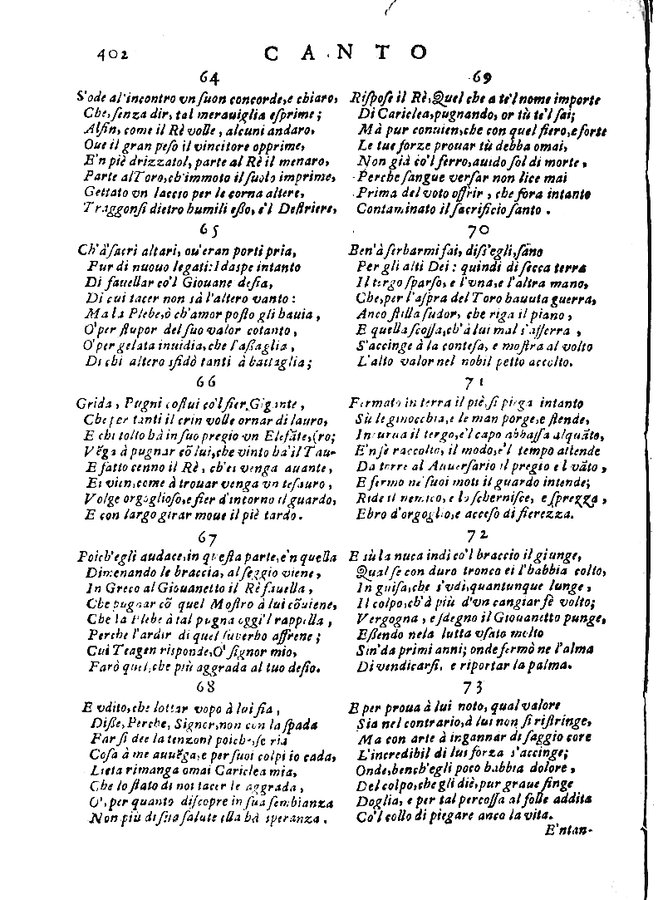 402 CANTO
64
S'ode al'incontro vn suon concorde, e chiaro,
Che, senza dir, tal merauiglia esprime;
Alfin, come il Rè volle, alcuni andaro,
Oue il gran peso il vincitore opprime,
E'n piè drizzatol, parte al Rè il menaro,
Parte al Toro, ch'immoto il suolo imprime,
Gettato vn laccio per le corna altere,
Traggonsi dietro humili esso, e'l Destriere,
65
Ch'à sacri altari, ou'eran porti pria,
Fur di nuouo legati: Idaspe intanto
Di fauellar co'l Giouane desia,
Di cui tacer non sà l'altero vanto:
Ma la Plebe, ò ch'amor posto gli hauia,
O' per stupor del suo valor cotanto,
O' per gelata inuidia, che l'assaglia,
Di chi altero sfidò tanti à battaglia;
66
Grida, Pugni costui co'l fier Gigante,
Che per tanti il crin volle ornar di lauro,
E chi tolto hà in suo pregio vn Elefãte, (ro;
Vẽga à pugnar cõ lui, che vinto hà il Tau-
E fatto cenno il Rè, ch'ei venga auante,
Ei vien, come à trouar venga vn tesauro,
Volge orgoglioso, e fier d'intorno il guardo,
E con largo girar moue il piè tardo.
67
Poich'egli audace, in questa parte, e'n quella
Dimenando le braccia, al seggio viene,
In Greco al Giouanetto il Rè fauella,
Che pugnar cõ quel Mostro à lui cõuiene,
Che la Plebe à tal pugna oggi'l rappella,
Perche l'ardir di quel superbo affrene;
Cui Teagen risponde, O' signor mio,
Farò quel, che più aggrada al tuo desio.
68
E vdito, che lottar vopo à lui sia,
Disse, Perche, Signor, non con la spada
Far si dee la tenzon? poich-se ria
Cosa à me auuẽga, e per suoi colpi io cada,
Lieta rimanga omai Cariclea mia,
Che lo stato di noi tacer le aggrada,
O', per quanto discopre in sua sembianza
Non più di sua salute ella hà speranza.
69
Rispose il Rè, Quel che a te'l nome importe
Di Cariclea, pugnando, or tù te'l sai;
Mà pur conuien, che con quel fiero, e forte
Le tue forze prouar tù debba omai,
Non già co'l ferro, auido sol di morte,
Perche sangue versar non lice mai
Prima del voto offrir, che fora intanto
Contaminato il sacrificio santo.
70
Ben'à serbarmi sai, diss'egli, sano
Per gli alti Dei: quindi di secca terra
Il tergo sparso, e l'vna, e l'altra mano,
Che, per l'aspra del Toro hauuta guerra,
Anco stilla sudor, che riga il piano,
E quella scossa, ch'à lui mal s'afferra,
S'accinge à la contesa, e mostra al volto
L'alto valor nel nobil petto accolto.
71
Fermato in terra il piè, si piega intanto
Sù le ginocchia, e le man porge, e stende,
Incurua il tergo, e'l capo abbassa alquãto,
E'n se raccolto, il modo, e'l tempo attende
Da torre al Auuersario il pregio e l vãto,
E fermo ne'suoi moti il guardo intende;
Ride il nemico, e lo schernisce, e sprezza,
Ebro d'orgoglio, e acceso di fierezza.
72
E sù la nuca indi co'l braccio il giunge,
Qual se con duro tronco ei l'habbia colto,
In guisa, che s'vdì, quantunque lunge,
Il colpo, ch'à più d'vn cangiar fè volto;
Vergogna, e sdegno il Giouanetto punge,
Essendo nela lutta vsato molto
Sin'da primi anni; onde fermò ne l'alma
Di vendicarsi, e riportar la palma.
73
E per proua à lui noto, qual valore
Sia nel contrario, à lui non si ristringe,
Ma con arte à ingannar di saggio core
L'incredibil di lui forza s'accinge;
Onde, bench'egli poco habbia dolore,
Del colpo, che gli diè, pur graue finge
Doglia, e per tal percossa al folle addita
Co'l collo di piegare anco la vita.
E'ntan-